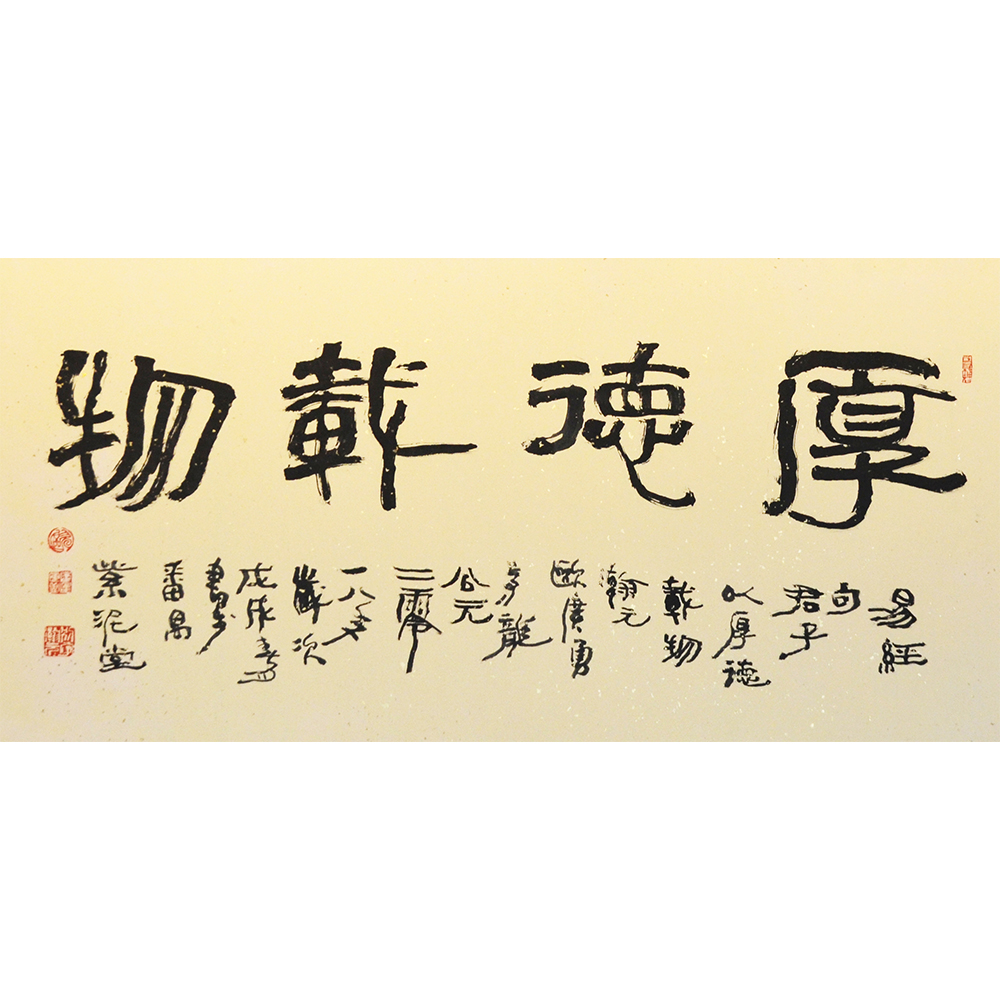 厚德載物
易經
句
君子
以厚德
載物
瀚元
歐廣勇
龍
公元
二零
一八年
歲次
戊戌春
書
番禺
紫泥堂